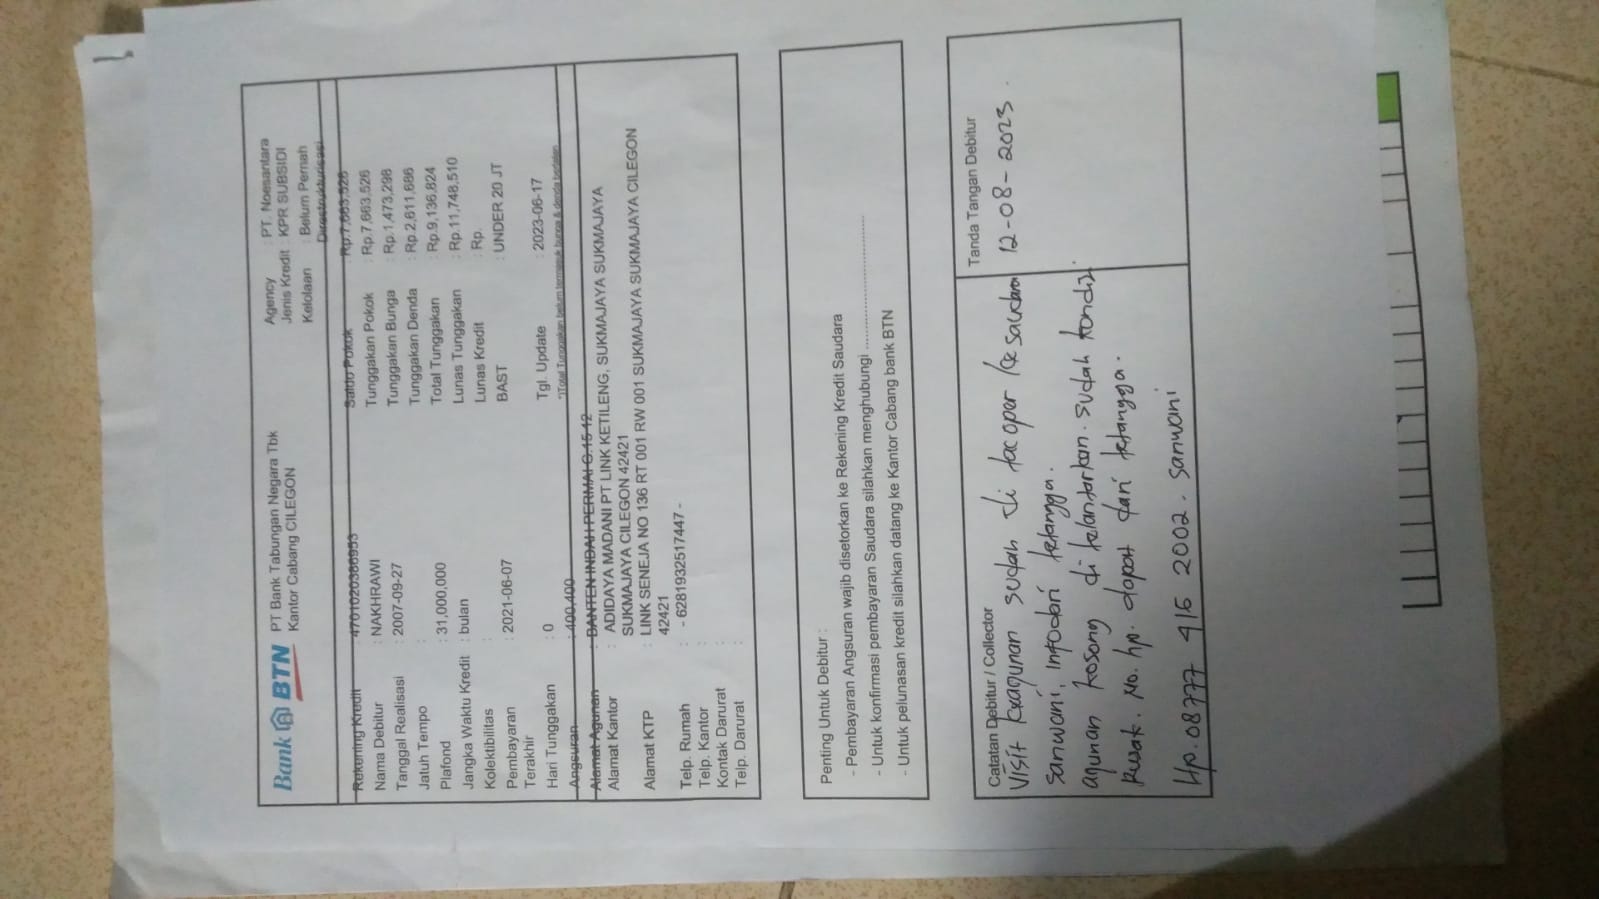 Bank BTN PT Bank Tabungan Negara Tbk
Kantor Cabang CILEGON
Agency : PT. Noesantara
Jenis Kredit : KPR SUBSIDI
Kelolaan : Belum Pernah
Direstrukturisasi
Rekening Kredit
Nama Debitur : NAKHRAWI
Tanggal Realisasi : 2007-09-27
Jatuh Tempo :
Plafond : 31,000,000
Jangka Waktu Kredit : bulan
Kolektibilitas :
Pembayaran : 2021-06-07
Terakhir
Hari Tunggakan : 0
Angsuran : 400,400
Saldo Pokok : Rp.7,663,526
Tunggakan Pokok : Rp.7,663,526
Tunggakan Bunga : Rp.1,473,298
Tunggakan Denda : Rp.2,611,686
Total Tunggakan : Rp.9,136,824
Lunas Tunggakan : Rp.11,748,510
Lunas Kredit : Rp.
BAST : UNDER 20 JT
Tgl. Update : 2023-06-17
*)Total Tunggakan belum termasuk bunga & denda berjalan
Alamat Agunan : BANTEN INDAH PERMAI C.15 12
Alamat Kantor : ADIDAYA MADANI PT LINK KETILENG, SUKMAJAYA SUKMAJAYA
SUKMAJAYA CILEGON 42421
Alamat KTP : LINK SENEJA NO 136 RT 001 RW 001 SUKMAJAYA SUKMAJAYA CILEGON
42421
Telp. Rumah : - 6281932517447 -
Telp. Kantor :
Kontak Darurat :
Telp. Darurat :
Penting Untuk Debitur :
- Pembayaran Angsuran wajib disetorkan ke Rekening Kredit Saudara
- Untuk konfirmasi pembayaran Saudara silahkan menghubungi ........................
- Untuk pelunasan kredit silahkan datang ke Kantor Cabang bank BTN
Catatan Debitur / Collector
Visit sudah di tacoper ke saudara
Sanwani, info dari tetangga.
agunan kosong di telantarkan. sudah kondisi
Rusak. No. hp. dapat dari tetangga.
Hp. 08777 416 2002. Sanwani
Tanda Tangan Debitur
12-08-2023.